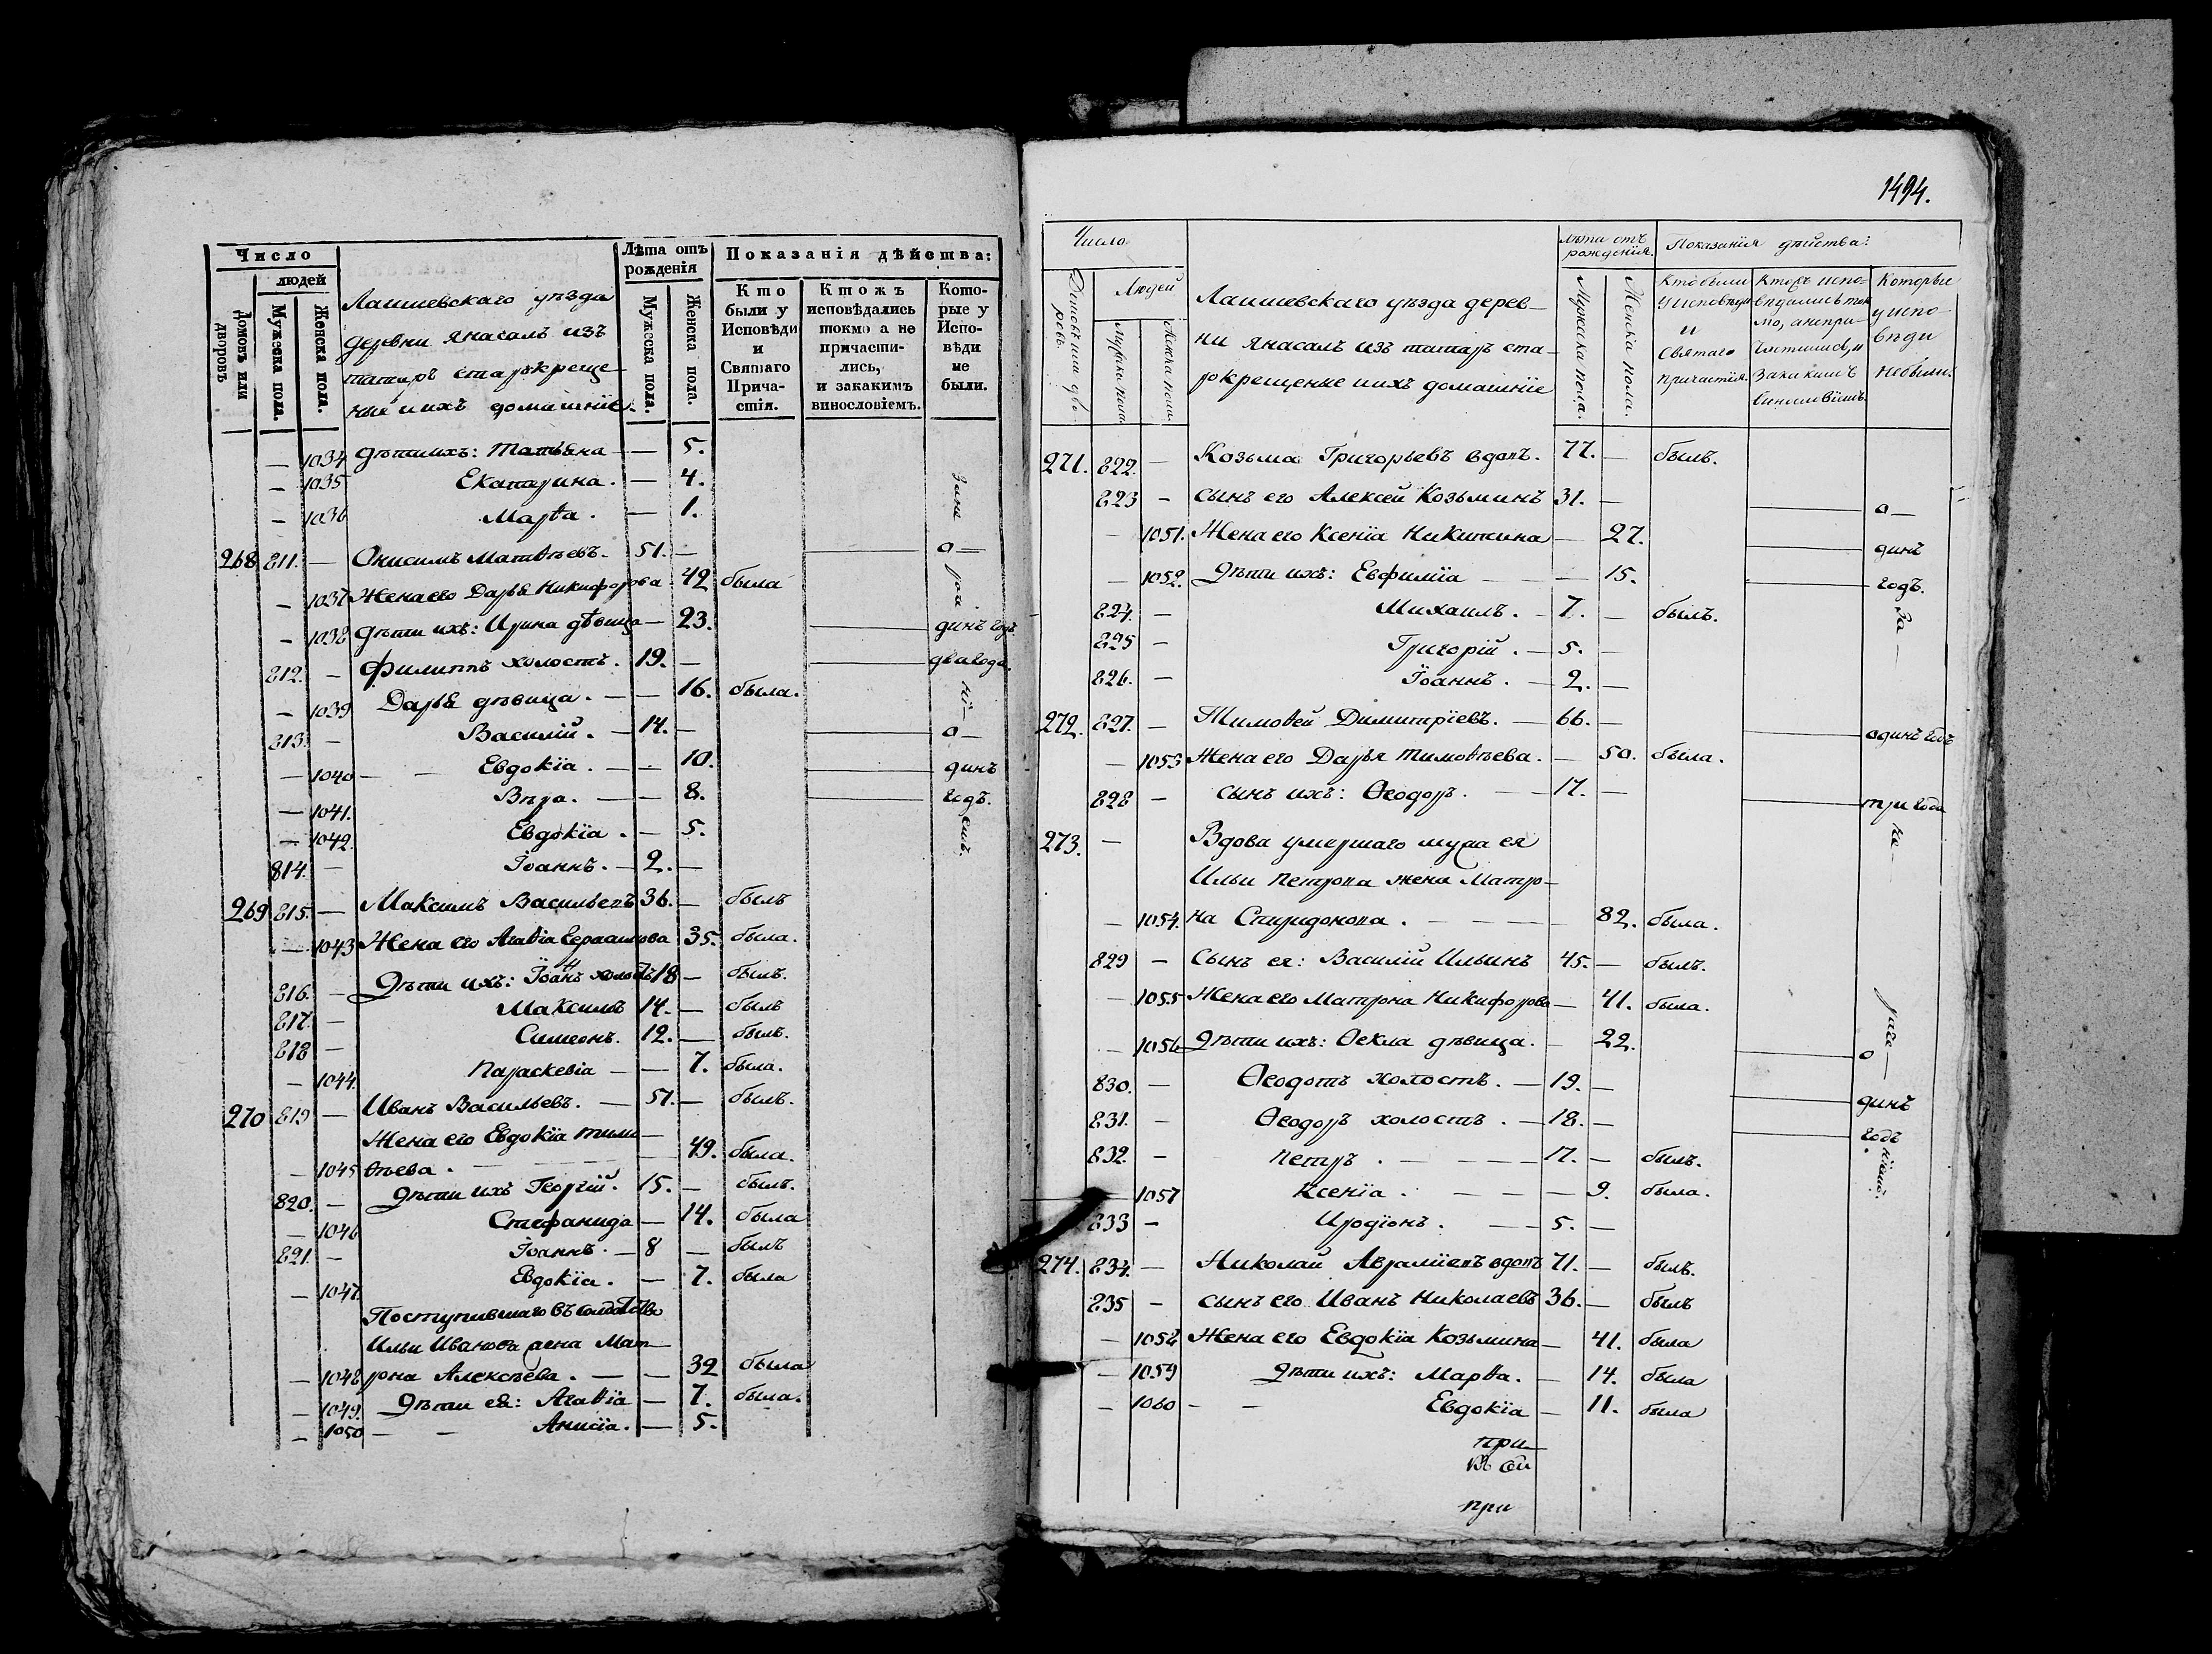 Число
людей
Домовъ или дворовъ
Мужеска пола.
Женска пола.
Лаишевскаго уѣзда
деревни Янасалъ изъ
татаръ старокреще-
ные и ихъ домашніе.
Лѣта отъ
рожденія
Мужеска пола.
Женска пола.
Показанія дѣйства:
Кто
были у
Исповѣди
и
Святаго
Прича-
стія.
Ктожъ
исповѣдались
токмо а не
причасти-
лись,
и закакимъ
винословіемъ.
Кото-
рые у
Испо-
вѣди
не
были.
— 1034 дѣти ихъ: Татьяна — 5.
— 1035 Екатерина. — 4.
— 1036 Марѳа. — 1.
268 811. — Онисимъ Матвѣевъ. 51. — о—
— 1037 Жена его Дарья Никифорова 42 была
— 1038 дѣти ихъ: Ирина дѣвица — 23. динъ годъ
812. — Филиппъ холостъ. 19. — два года.
— 1039 Дарья дѣвица. — 16. была.
813. — Василій. — 14. — о—
— 1040 — Евдокія. — 10. динъ
— 1041. Вѣра. — 8. годъ.
— 1042. Евдокія. — 5.
814. — Іоаннъ. — 2. —
269 815. — Максимъ Васильевъ 36. — былъ
— 1043 Жена его Агаѳія 35. была.
816. — Дѣти ихъ: Іоанъ холостъ 18 — былъ.
817. — Максимъ 14. — былъ
818 — Симеонъ. 12. — былъ.
— 1044. Параскевія — 7. была.
270 819 — Иванъ Васильевъ. — 51. — былъ.
Жена его Евдокія Тимо-
— 1045 ѳѣева. — 49. была.
820. — Дѣти ихъ Георгій. 15. — былъ.
— 1046 Стефанида — 14. была
821. — Іоаннъ. — 8 — былъ
— 1047. Евдокія. — 7. была
Поступившаго въ солдатство
Ильи Иванова жена Мат-
— 1048 рона Алексѣева. — 32 была
— 1049. Дѣти ея: Агаѳія — 7. была.
— 1050 — Анисія. — 5.
1494.
Число
Людей
Мужска пола
Женска пола.
Лаишевскаго уѣзда дерев-
ни Янасалъ изъ татаръ ста-
рокрещеные и ихъ домашніе
Лѣта отъ
рожденія.
Мужска пола.
Женска пола.
Показанія дѣйства:
Кто были
у исповѣди
и
Святаго
причастія.
Ктожъ испо-
вѣдались ток
мо, а непри-
частились, и
закакимъ
винословіемъ.
Которые
у испо-
вѣди
небыли.
271. 822. — Козьма Григорьевъ вдовъ. 77. — былъ.
823 — сынъ его Алексей Козьминъ 31. — о—
— 1051. Жена его Ксенія Никитина — 27. динъ
— 1052. Дѣти ихъ: Евфимія — 15. годъ.
824. — Михаилъ. — 7. — былъ.
825 — Григорій. — 5. —
826. — Іоаннъ. — 2. —
272. 827. — Тимоѳей Димитріевъ. — 66. — одинъ годъ
— 1053 Жена его Дарья Тимоѳѣева. — 50. была.
828 — сынъ ихъ: Ѳеодоръ. — 17. — три года
273. — Вдова умершаго мужа ея
Ильи Петрова жена Матро-
— 1054. на Спиридонова. — 82. была.
829 — Сынъ ея: Василій Ильинъ 45. — былъ.
— 1055 Жена его Матрона Никифорова — 41. была.
— 1056 Дѣти ихъ: Ѳекла дѣвица. — 22. о
830. — Ѳеодотъ холостъ. — 19. — динъ
831. — Ѳеодоръ холостъ. — 18. — годъ.
832. — Петръ. — 17. — былъ.
— 1057 Ксенія. — 9. была.
833 — Иродіонъ. — 5. —
274. 834. — Николай Авраміевъ вдовъ 71. — былъ.
835 — сынъ его Иванъ Николаевъ 36. — былъ
— 1058 Жена его Евдокія Козьмина — 41. была
— 1059 Дѣти ихъ: Марѳа. — 14. была
— 1060 — Евдокія — 11. была
при
Въ сей
при